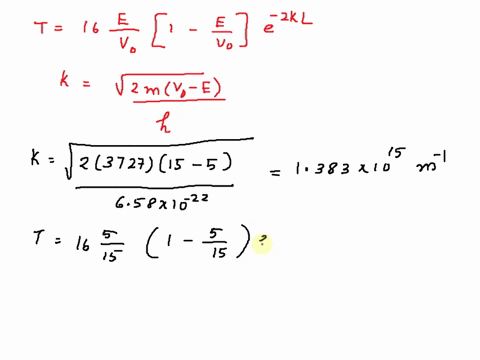 T = 16 E/V₀ [1 - E/V₀] e^-2kL
K = √2m(V₀-E) / ħ
K = √2(3727)(15-5) / 6.58×10^-22 = 1.383×10^15 m^-1
T = 16 5/15 (1 - 5/15)